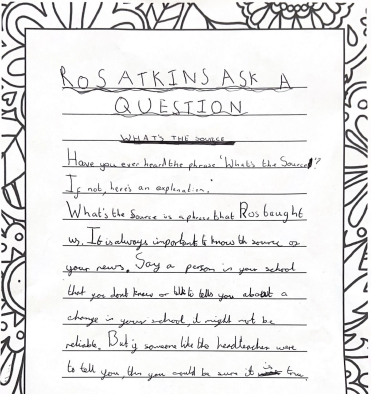 ROS ATKINS ASK A
QUESTION
WHAT'S THE SOURCE
Have you ever heard the phrase 'What's the Source'?
If not, here's an explanation.
What's the Source is a phrase that Ros taught
us. It is always important to know th source os
your news. Say a person in your school
that you dont know or like tells you about a
change in your school, it might not be
reliable. But if someone like the headteacher were
to tell you, then you could be sure it is true.